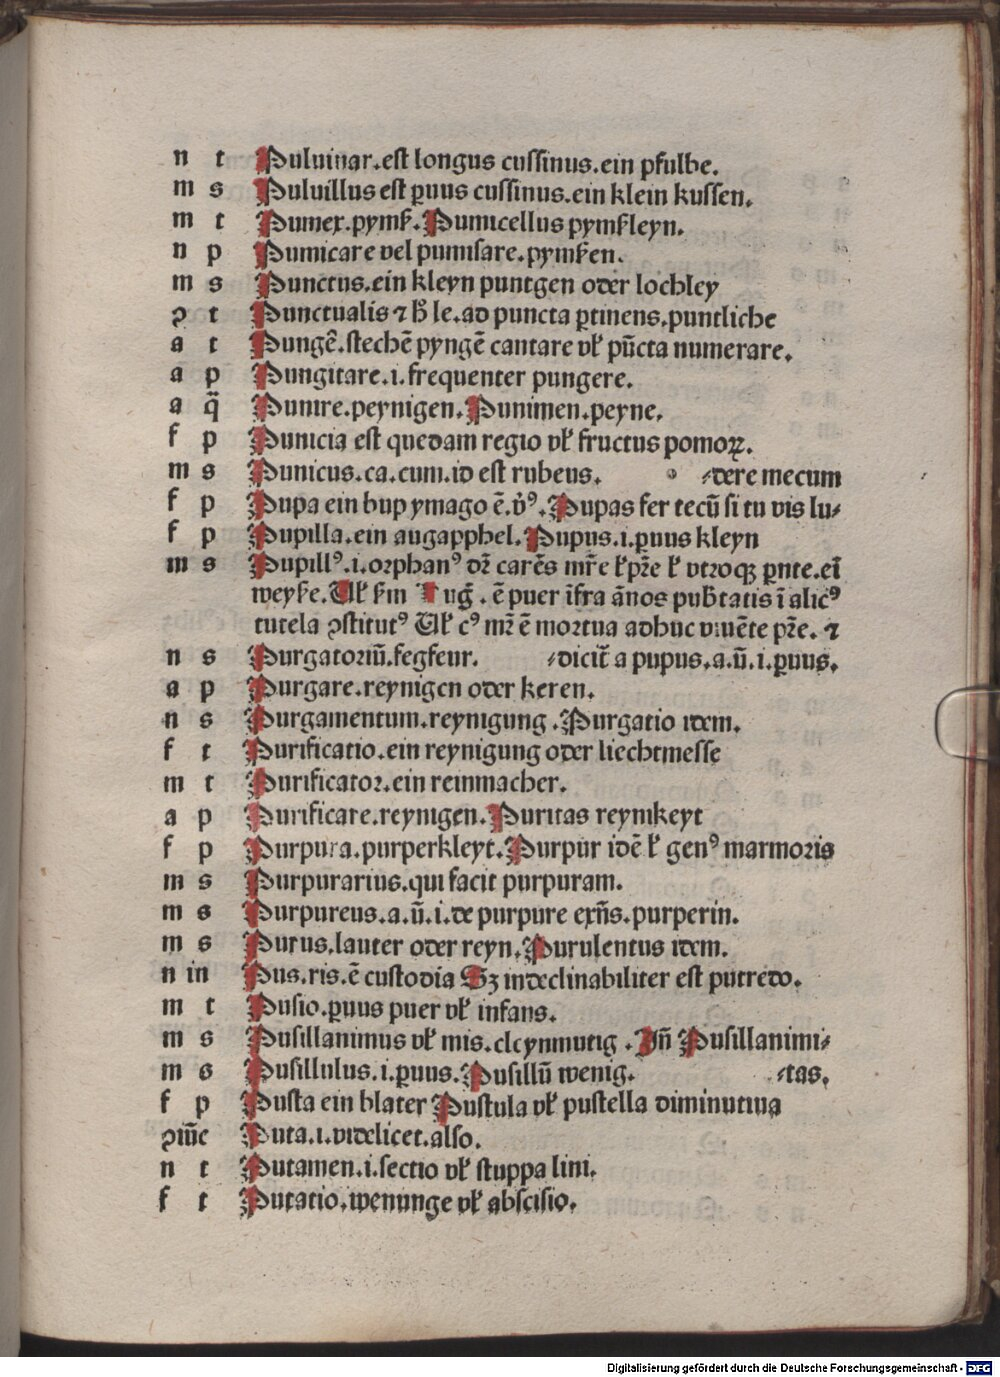 n t Puluinar.est longus cussinus.ein pfulbe.
m s Puluillus est ꝑuus cussinus.ein klein kussen.
m t Pumex.pymß. Pumicellus pymßleyn.
n p Pumicare vel pumisare.pymßen.
m s Punctus.ein kleyn puntgen oder lochley
ꝯ t Punctualis ⁊ h̄ le.ad puncta ꝑtinens.puntliche
a t Pungē̄.stechē pyngē cantare vł pūcta numerare.
a p Pungitare.i.frequenter pungere.
a q̄ Punire.peynigen. Punimen.peyne.
f p Punicia est quedam regio vł fructus pomoꝝ.
m s Punicus.ca.cum.id est rubeus. ⸗dere mecum
f p Pupa ein bup ymago ē.v̓ꝰ. Pupas fer tecū si tu vis lu⸗
f p Pupilla.ein augapphel. Pupus.i.ꝑuus kleyn
m s Pupillꝰ.i.orphanꝰ dr̄ carēs mr̄e ł pr̄e ł vtroqꝫ ꝑnte.eī
weyße. Vł ßm Auḡ. ē puer īfra ānos pub̄tatis ī alicꝰ
tutela ꝯstitutꝰ Vł cꝰ mr̄ ē mortua adhuc viuēte pr̄e. ⁊
n s Purgatoriū.fegfeur. ⸗dicit̄ a pupus.a.ū.i.ꝑuus.
a p Purgare.reynigen oder keren.
n s Purgamentum.reynigung. Purgatio idem.
f t Purificatio.ein reynigung oder liechtmesse
m t Purificator.ein reinmacher.
a p Purificare.reynigen. Puritas reynikeyt
f p Purpura.purperkleyt. Purpur idē ł genꝰ marmoris
m s Purpurarius.qui facit purpuram.
m s Purpureus.a.ū.i.de purpure exn̄s.purperin.
m s Purus.lauter oder reyn. Purulentus idem.
n in Pus.ris.ē custodia Sꝫ indeclinabiliter est putredo.
m t Pusio.ꝑuus puer vł infans.
m s Pusillanimus vł mis.cleynmutig. Jn̄ Pusillanimi⸗
m s Pusillulus.i.ꝑuus. Pusillū wenig. ⸗tas.
f p Pusta ein blater Pustula vł pustella diminutiua
ꝯiūc Puta.i.videlicet.also.
n t Putamen.i.sectio vł stuppa lini.
f t Putatio.wenunge vł abscisio.
Digitalisierung gefördert durch die Deutsche Forschungsgemeinschaft - DFG